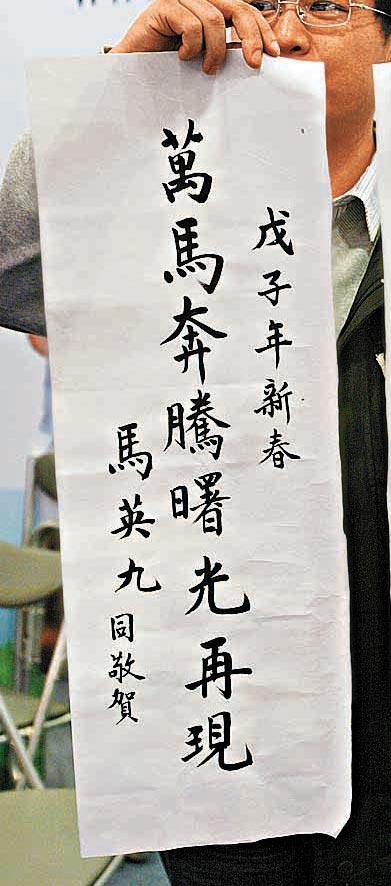 戊子年新春
萬馬奔騰曙光再現
馬英九同敬賀